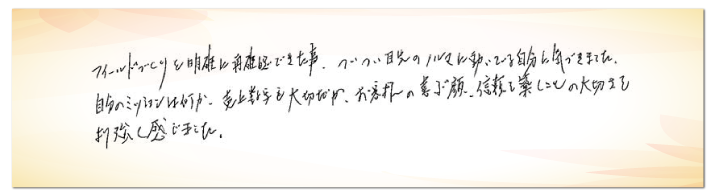 フィールドづくりを明確に再確認できた事、ついつい目先のノルマに動いている自分に気づきました。
自分のミッションは何か、売上数字も大切だが、お客様の喜ぶ顔、信頼を築くことの大切さを
お強く感じました。